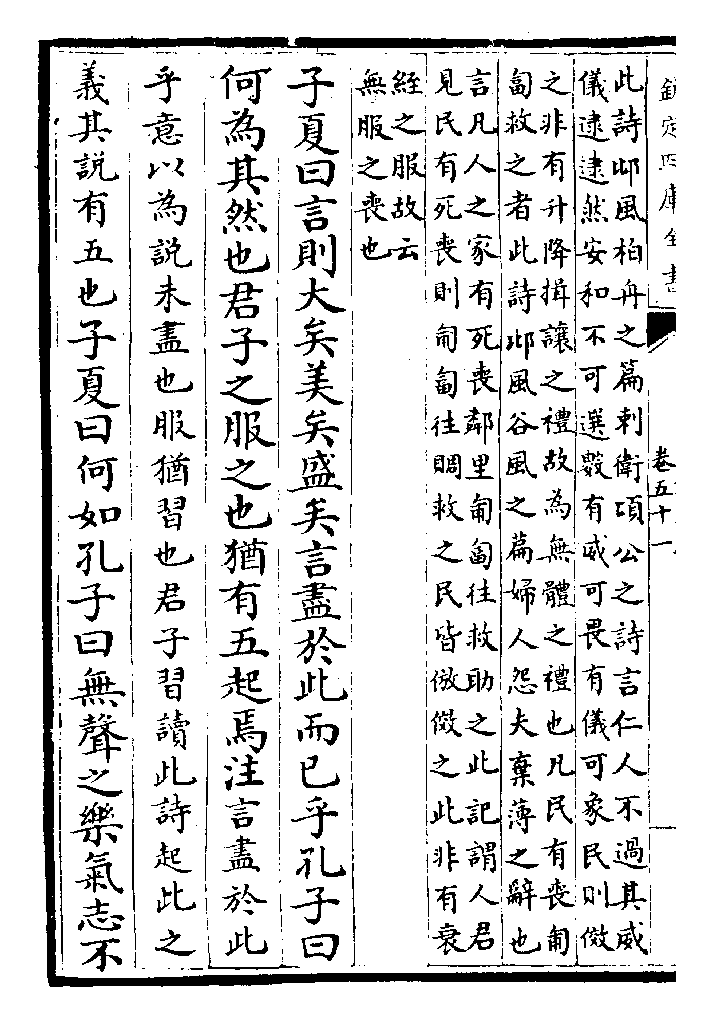 欽定四庫全書
卷五十一
此詩邶風柏舟之篇刺衛頃公之詩言仁人不過其威
儀逮逮然安和不可選數有威可畏有儀可象民則傚
之非有升降揖讓之禮故為無體之禮也凡民有喪匍
匐救之者此詩邶風谷風之篇婦人怨夫棄薄之辭也
言凡人之家有死喪鄰里匍匐往救助之此記謂人君
見民有死喪則匍匐往賙救之民皆倣傚之此非有衰
絰之服故云
無服之喪也
子夏曰言則大矣美矣盛矣言盡於此而已乎孔子曰
何為其然也君子之服之也猶有五起焉注言盡於此
乎意以為說未盡也服猶習也君子習讀此詩起此之
義其說有五也子夏曰何如孔子曰無聲之樂氣志不